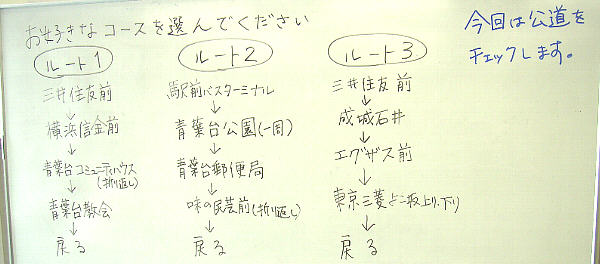 お好きなコースを選んでください
今回は公道を
チェックします。
ルート1
三井住友前
↓
横浜信金前
↓
青葉台コミュニティハウス
(折り返し)
↓
青葉台教会
↓
戻る
ルート2
駅前バスターミナル
↓
青葉台公園(一周)
↓
青葉台郵便局
↓
味の民芸前(折り返し)
↓
戻る
ルート3
三井住友前
↓
成城石井
↓
エグザス前
↓
東京三菱よこ坂上り、下り
↓
戻る